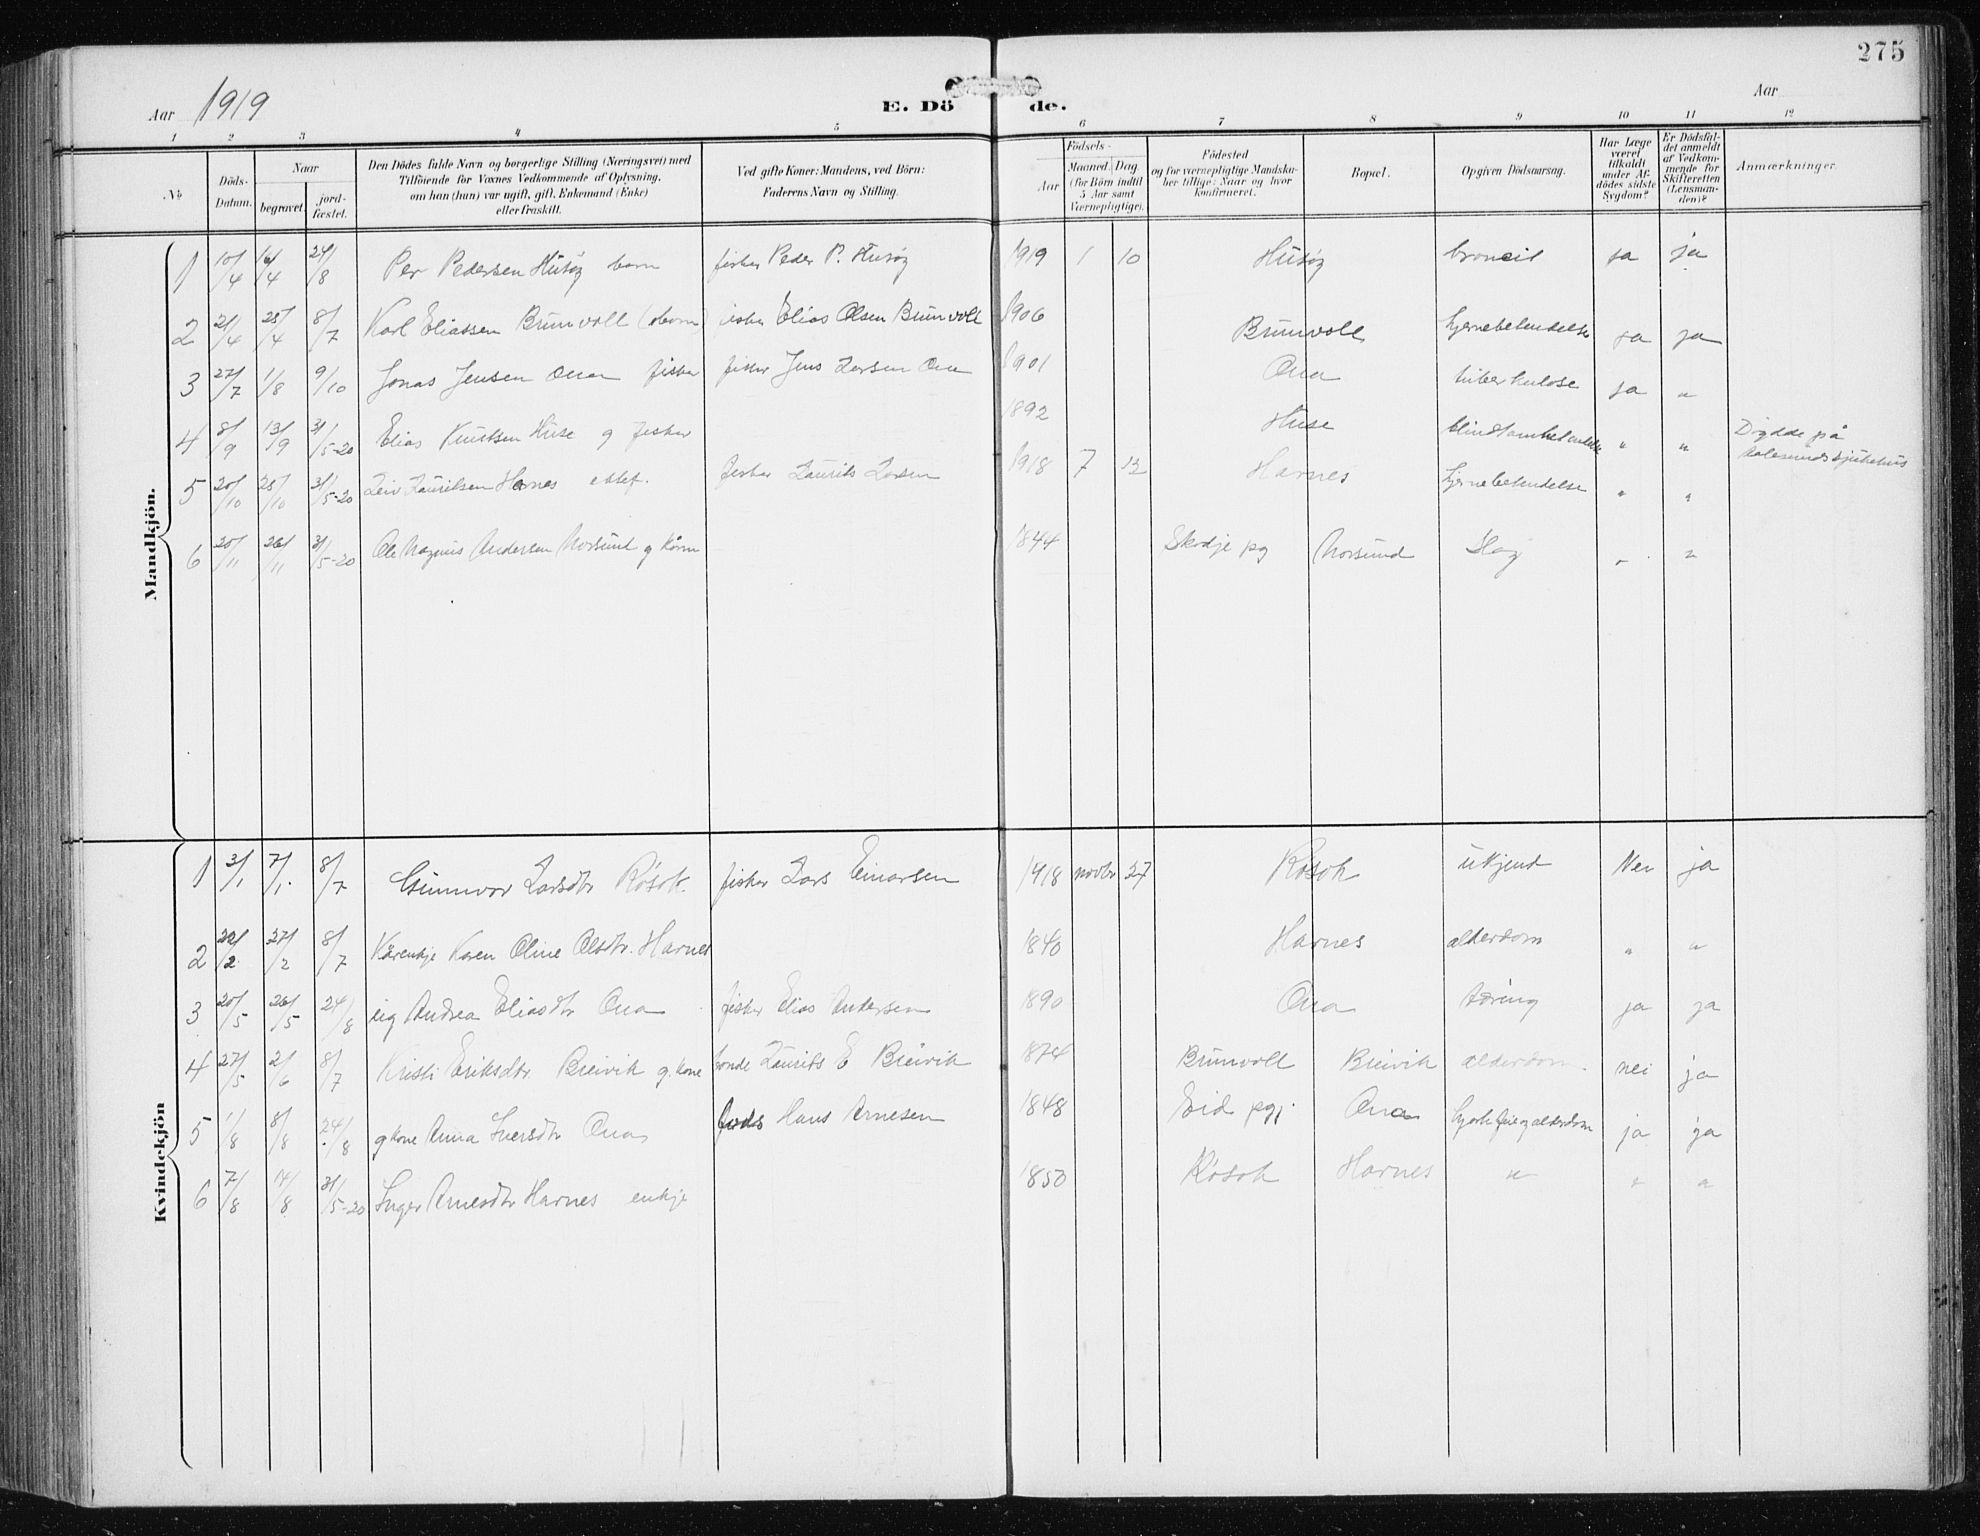 275
Aar 1919
E. Dö de.
Aar
1 2 3 4 5 6 7 8 9 10 11 12
No.
Döds-Datum.
Naar
begravet.
jord-fæstet.
Den Dödes fulde Navn og borgerlige Stilling (Næringsvei) med
Tilföiende for Voxnes Vedkommende af Oplysning,
om han (hun) var ugift, gift, Enkemand (Enke)
eller fraskilt.
Ved gifte Koner: Mandens, ved Börn:
Faderens Navn og Stilling.
Födsels-
Aar
Maaned. Dag.
(for Börn indtil
5 Aar samt
Værnepligtige).
Födested
og for værnepligtige Mandska-
ber tillige: Naar og hvor
konfirmeret.
Bopæl.
Opgiven Dödsaarsag.
Har Læge
været
tilkaldt
under Af-
dödes sidste
Sygdom?
Er Dödsfal-
det anmeldt
af Vedkom-
mende for
Skifteretten
(Lensman-
den)?
Anmærkninger.
Mandkjön.
1 10/4 16/4 24/8 Per Pedersen Husøy barn fisker Peder P. Husøy 1919 1 10 Husøy broncit ja ja
2 21/4 25/4 8/7 Karl Eliassen Brunvoll (barn) fisker Elias Olsen Brunvoll 1906 Brunvoll hjernebetendelse ja ja
3 27/7 1/8 9/10 Jonas Jensen Ona fisker fisker Jens Larsen Ona 1901 Ona tuberkulose ja "
4 8/9 13/9 31/5-20 Elias Knutsen Huse g fisker 1892 Huse blindtarmbetendelse " " Døydde på Aalesunds sjukehus
5 20/10 25/10 31/5-20 Leiv Lauritsen Harnes ektef. fisker Laurits Larsen 1918 7 12 Harnes hjernebetendelse " "
6 20/11 26/11 31/5-20 Ole Magnus Andersen Norsund g kårm 1844 Skodje pg Norsund Slag " "
Kvindekjön
1 3/1 7/1. 8/7 Gunnvor Larsdtr Røsok. fisker Lars Einarsen 1918 novbr 27 Røsok ukjend Nei ja
2 22/2 27/2 8/7 Kårenkje Karen Oline Olsdtr. Harnes 1840 Harnes alderdom " "
3 20/5 26/5 24/8 ug Andrea Eliasdtr Ona fisker Elias Andersen 1890 Ona tæring ja ja
4 27/5 2/6 8/7 Kristi Eriksdtr Breivik g. kone bonde Laurits E Breivik 1874 Brunvoll Breivik alderdom. nei ja
5 1/8 8/8 24/8 g kone Anna Iversdtr Ona Hans Arnesen 1848 Eid pgj. Ona hjertefeil og alderdom ja ja
6 7/8 14/8 31/5-20 Inger Arnesdtr Harnes enkje 1850 Røsok Harnes " " "